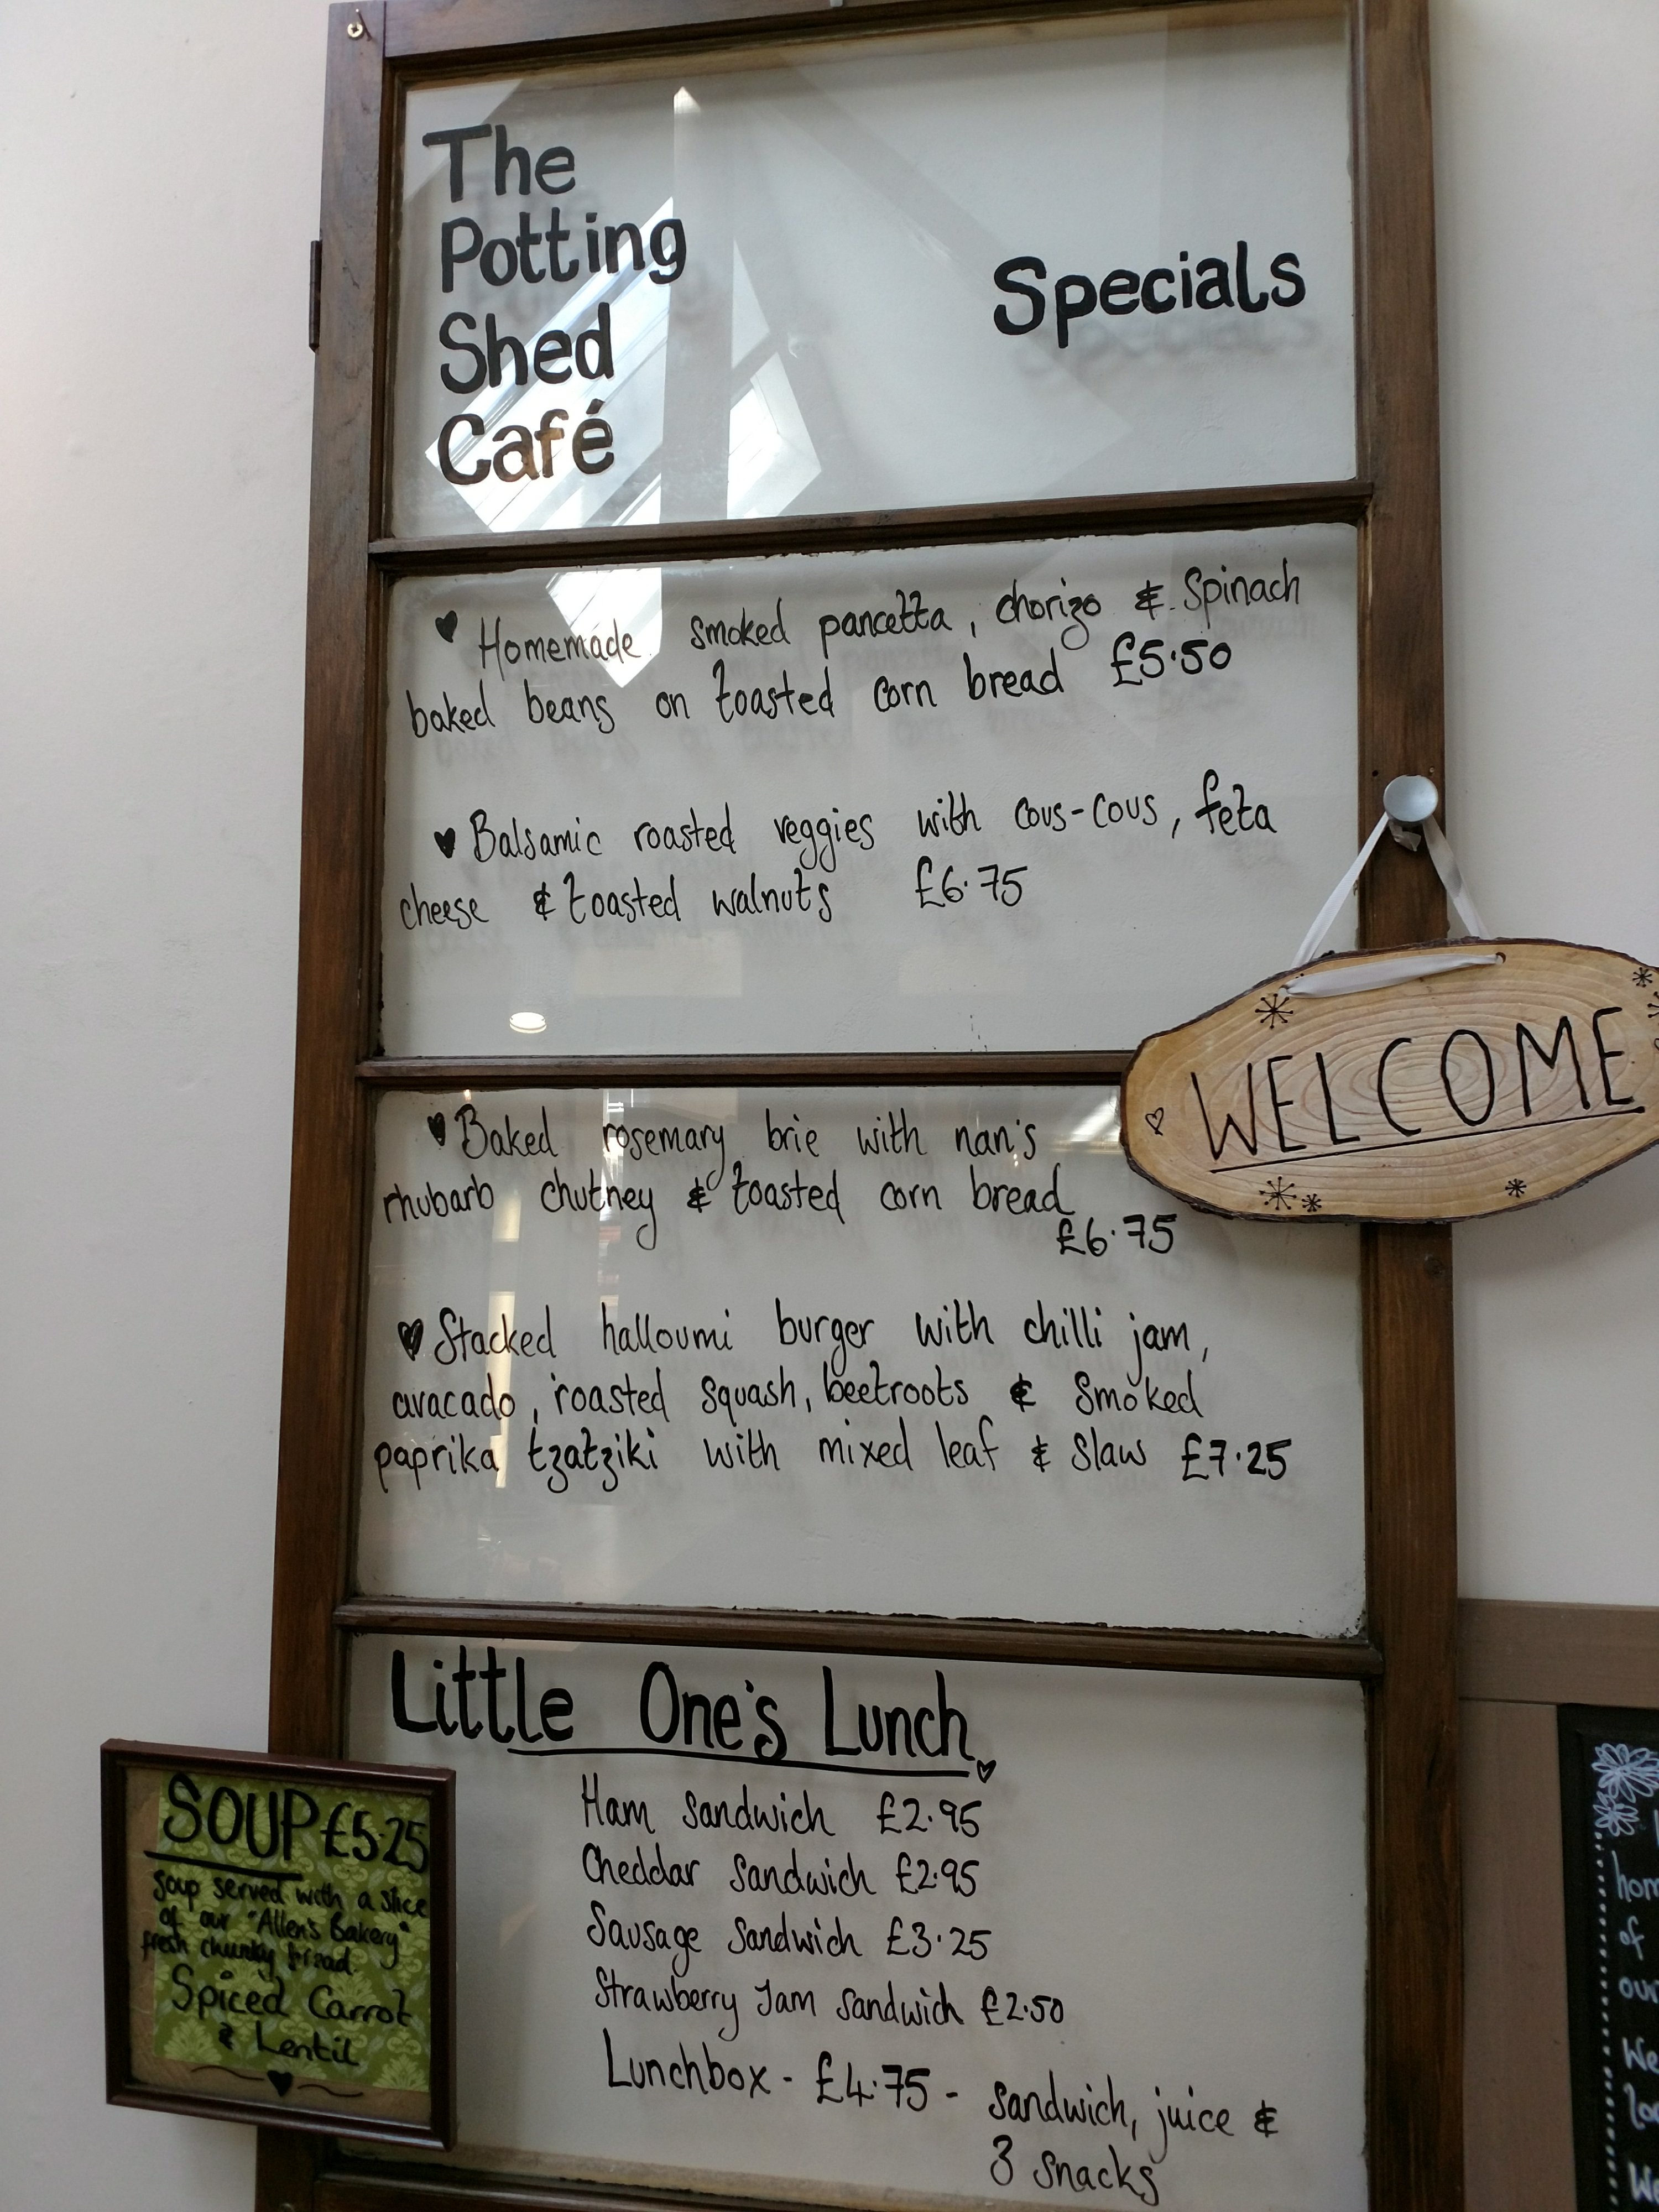 The
Potting
Shed
Café
Specials
Homemade smoked pancetta, chorizo & Spinach
baked beans on toasted corn bread £5.50
Balsamic roasted veggies with cous-cous, feta
cheese & toasted walnuts £6.75
WELCOME
Baked rosemary brie with nan's
rhubarb chutney & toasted corn bread
£6.75
Stacked halloumi burger with chilli jam,
avacado, roasted squash, beetroots & smoked
paprika tzatziki with mixed leaf & slaw £7.25
Little One's Lunch
Ham Sandwich £2.95
Cheddar Sandwich £2.95
Sausage Sandwich £3.25
Strawberry Jam Sandwich £2.50
Lunchbox - £4.75 - Sandwich, juice &
3 snacks
SOUP £5.25
Soup served with a slice
of our "Allen's Bakery"
fresh chunky bread.
Spiced Carrot
& Lentil
of
our
We